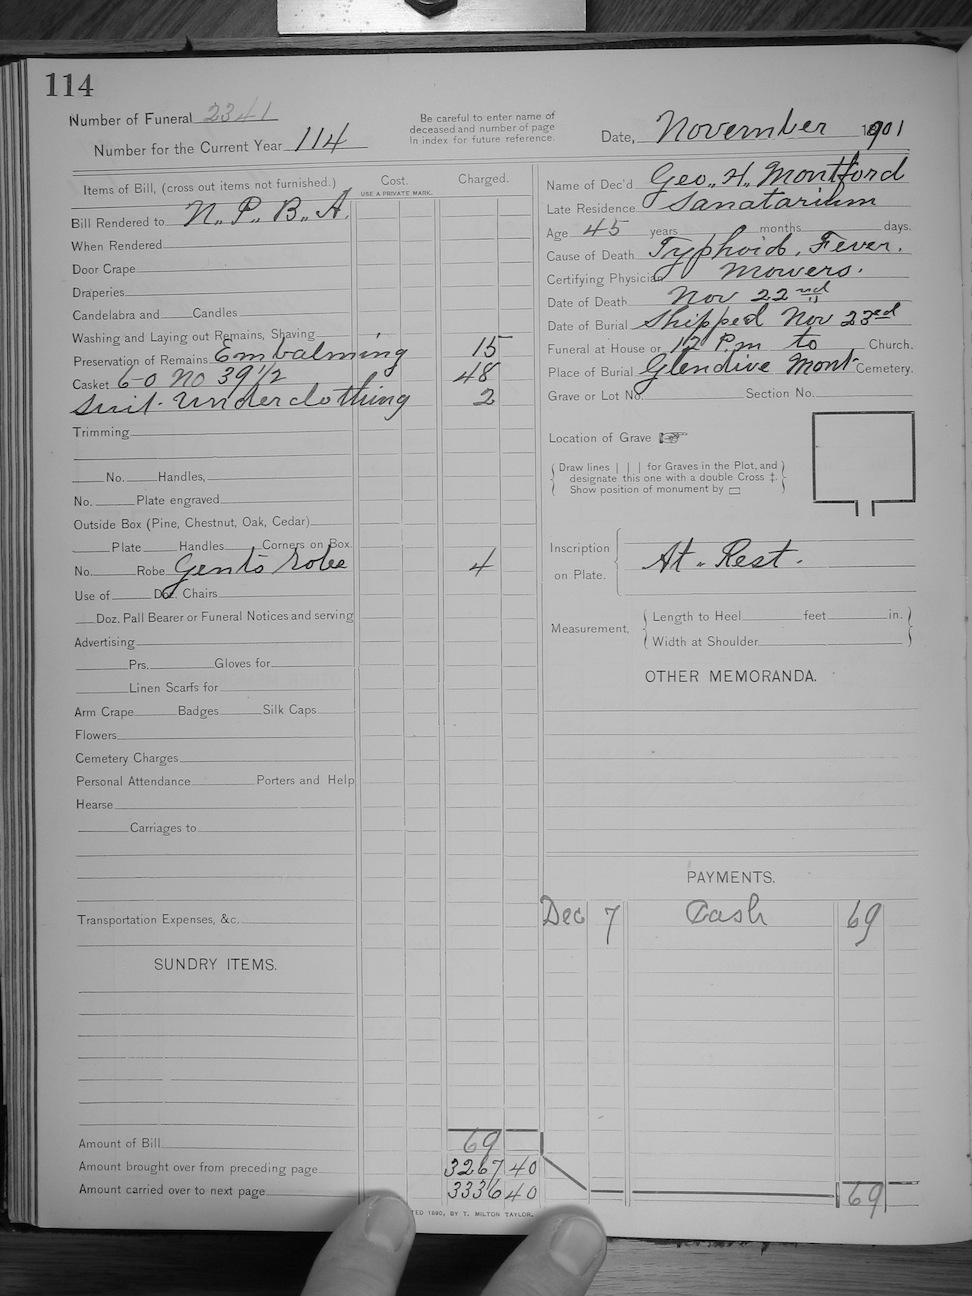 114
Number of Funeral 2341
Number for the Current Year 114
Be careful to enter name of
deceased and number of page
in index for future reference.
Date, November 1901
Items of Bill, (cross out items not furnished.)
Cost.
USE A PRIVATE MARK.
Charged.
Bill Rendered to N.. P.. B.. A.
When Rendered
Door Crape
Draperies
Candelabra and Candles
Washing and Laying out Remains, Shaving
Preservation of Remains Embalming 15
Casket 6-0 No 39 1/2 48
Suit. Underclothing 2
Trimming
No. Handles,
No. Plate engraved
Outside Box (Pine, Chestnut, Oak, Cedar)
Plate Handles Corners on Box.
No. Robe Gents robe 4
Use of Doz. Chairs
Doz. Pall Bearer or Funeral Notices and serving
Advertising
Prs. Gloves for
Linen Scarfs for
Arm Crape Badges Silk Caps
Flowers
Cemetery Charges
Personal Attendance Porters and Help
Hearse
Carriages to
Transportation Expenses, &c.
SUNDRY ITEMS.
Amount of Bill 69
Amount brought over from preceding page 3267 40
Amount carried over to next page 3336 40
TED 1890, BY T. MILTON TAYLOR.
Name of Dec'd Geo.. H.. Montford
Late Residence Sanatarium
Age 45 years months days.
Cause of Death Typhoid. Fever.
Certifying Physician Mowers.
Date of Death Nov 22nd
Date of Burial Shipped Nov 23rd
Funeral at House or 12 P.m to Church.
Place of Burial Glendive Mont Cemetery.
Grave or Lot No. Section No.
Location of Grave
Draw lines | | | for Graves in the Plot, and
designate this one with a double Cross ‡.
Show position of monument by ▭
Inscription
on Plate.
At.. Rest.
Measurement,
Length to Heel feet in.
Width at Shoulder
OTHER MEMORANDA.
PAYMENTS.
Dec 7 Cash 69
69